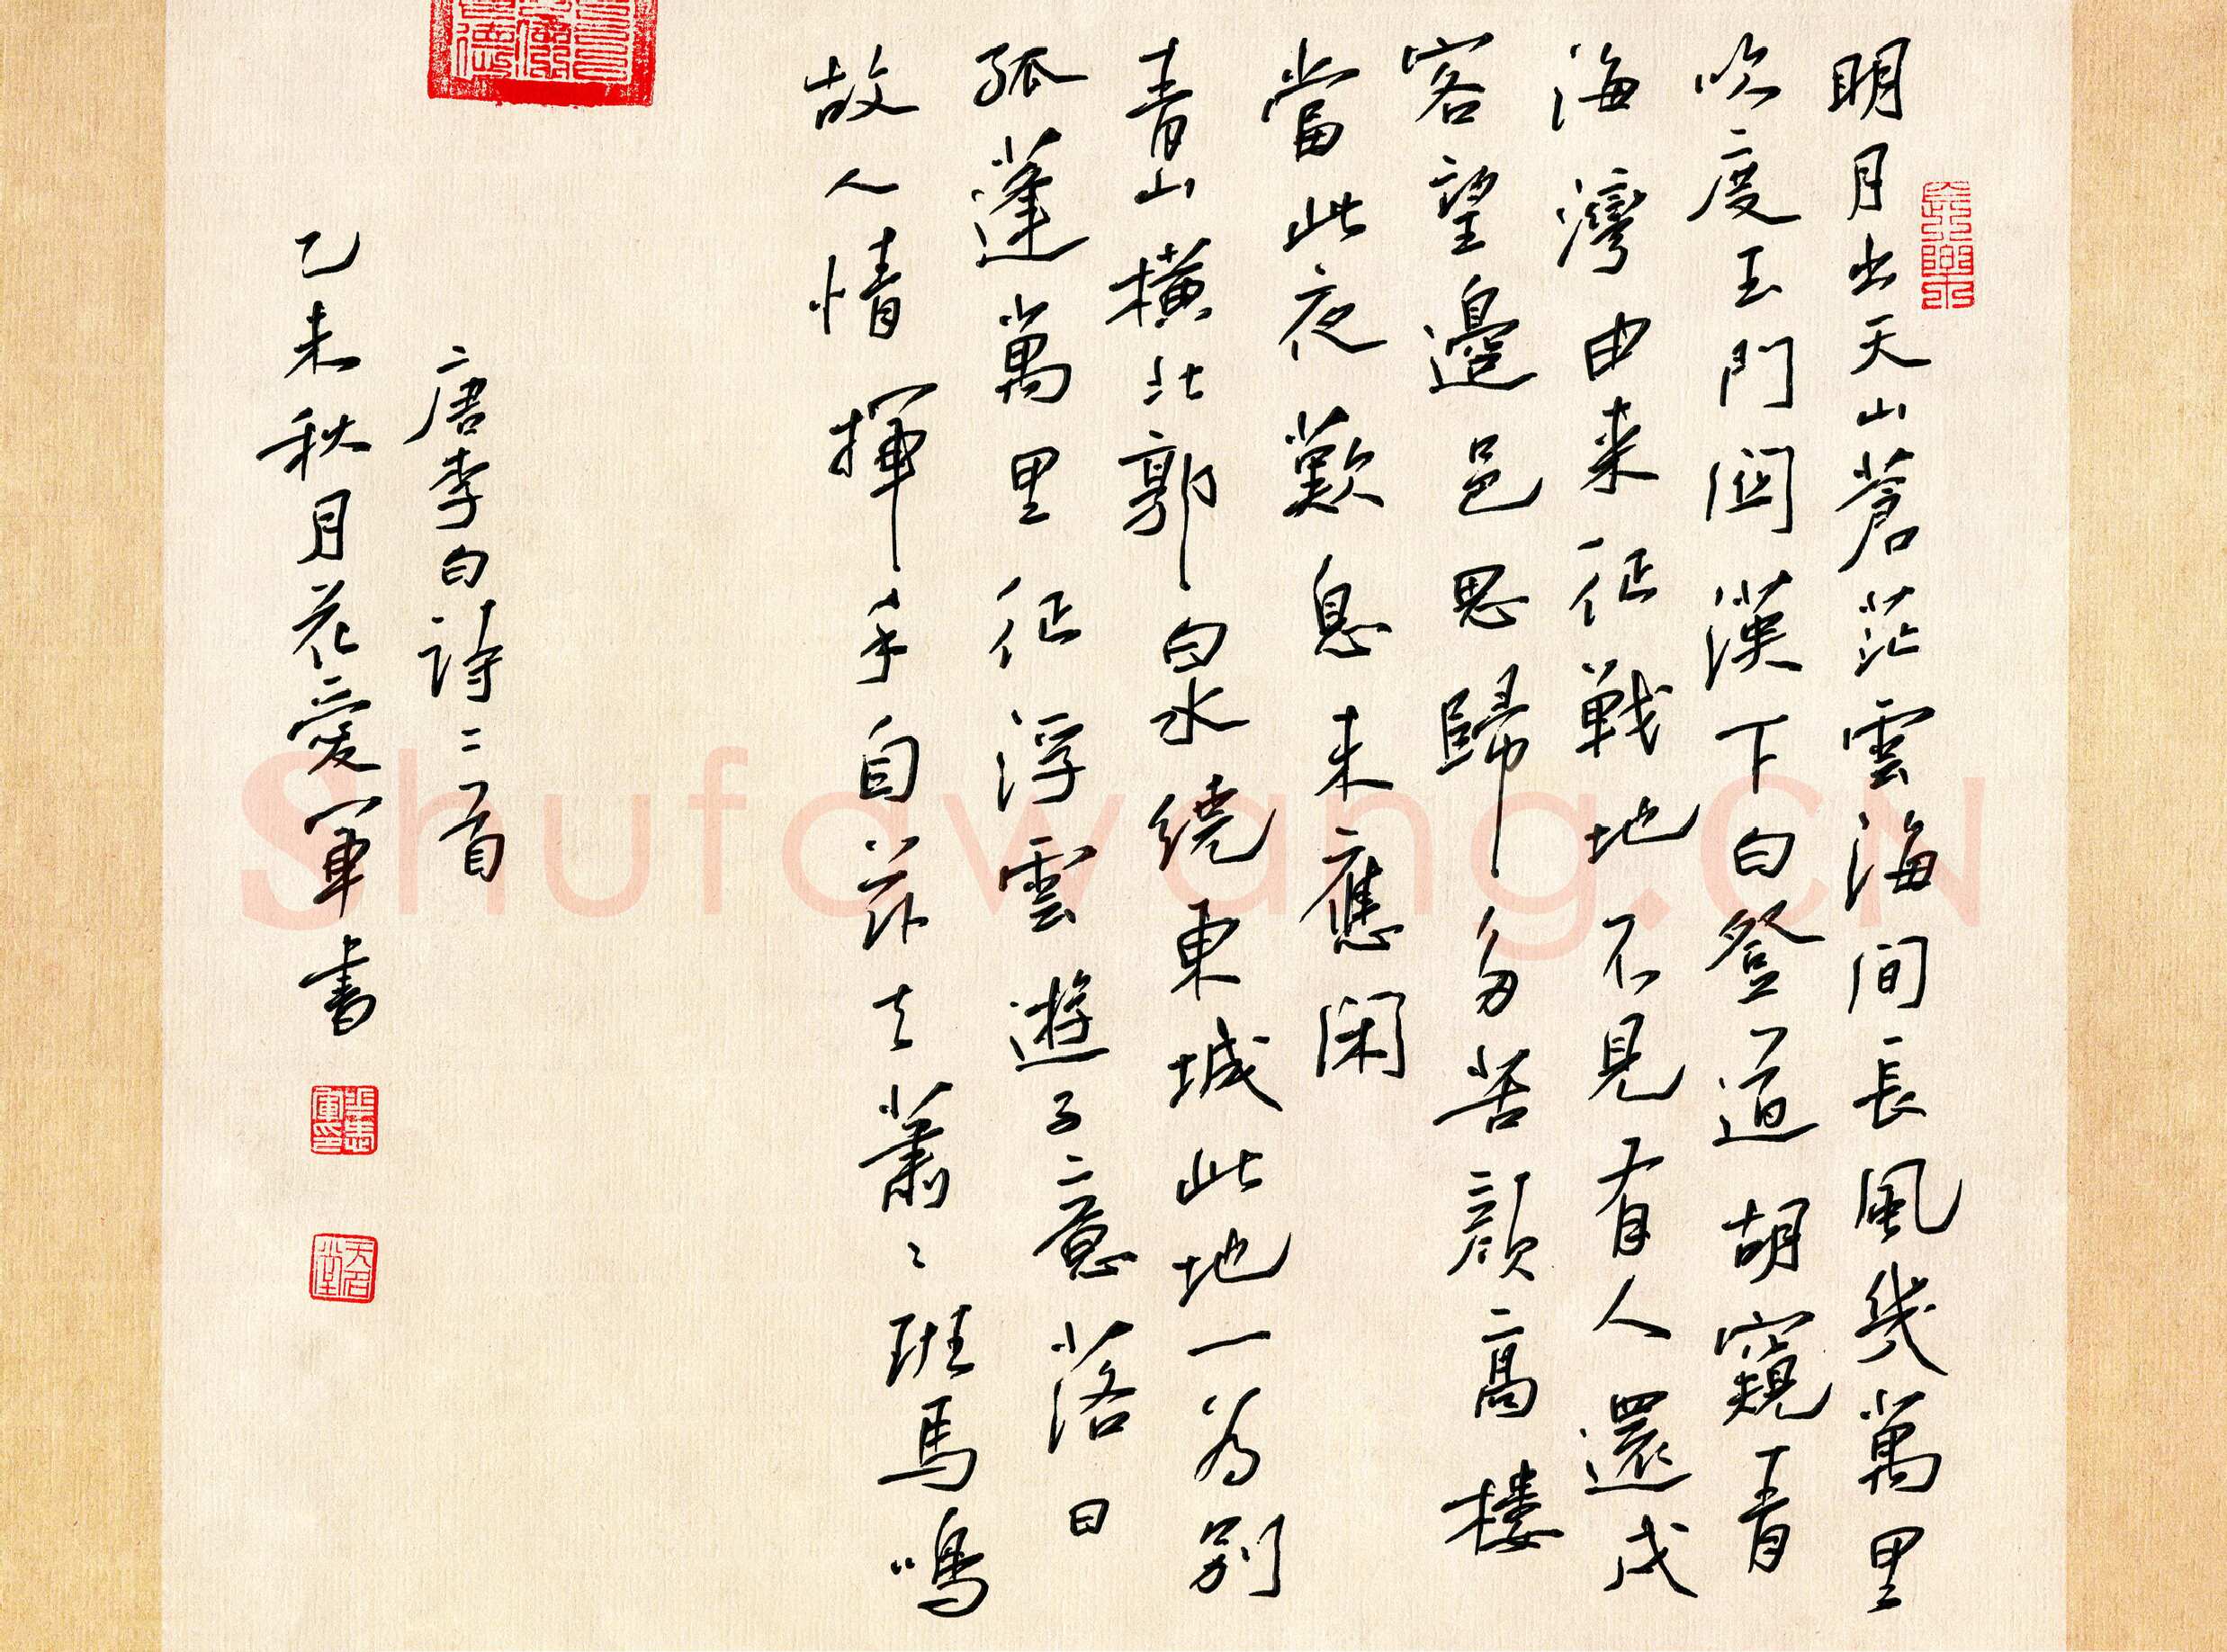 明月出天山蒼茫雲海间長風幾萬里
吹度玉門関漢下白登道胡窺青
海灣由来征戦地不見有人還戍
客望邊邑思歸多苦顔高樓
當此夜歎息未應闲
青山橫北郭白水绕東城此地一为别
孤蓬萬里征浮雲遊子意落日
故人情揮手自茲去蕭〻班馬鳴
唐李白詩二首
乙未秋月花愛軍書
Shufawang.CN